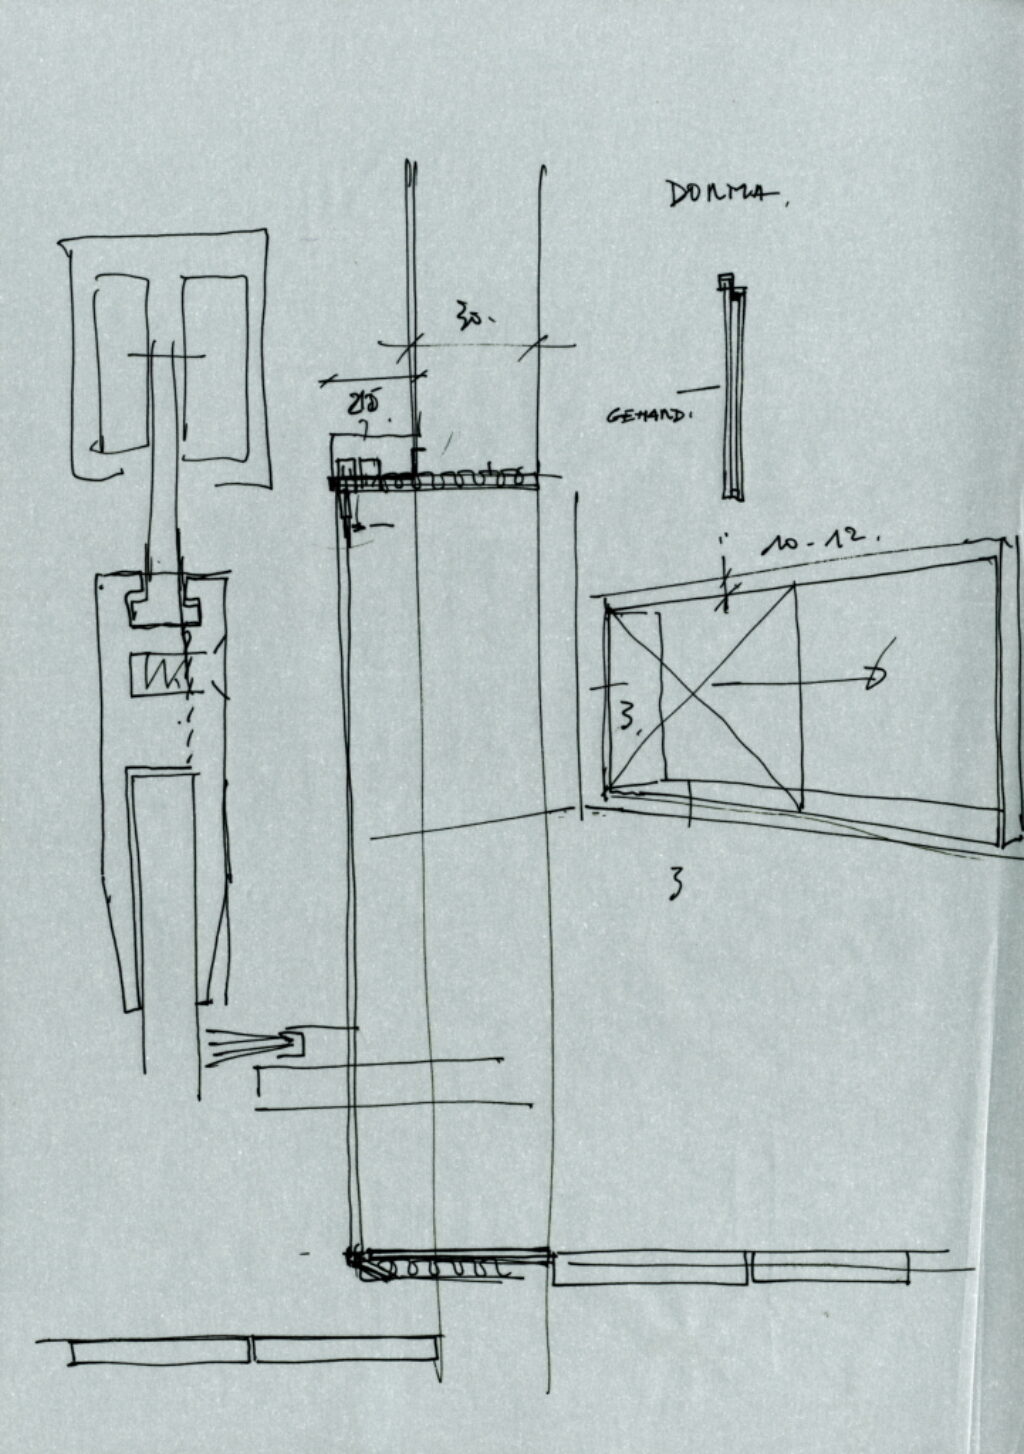 DORMA.
30.
GEHARD.
10-12.
3.
3